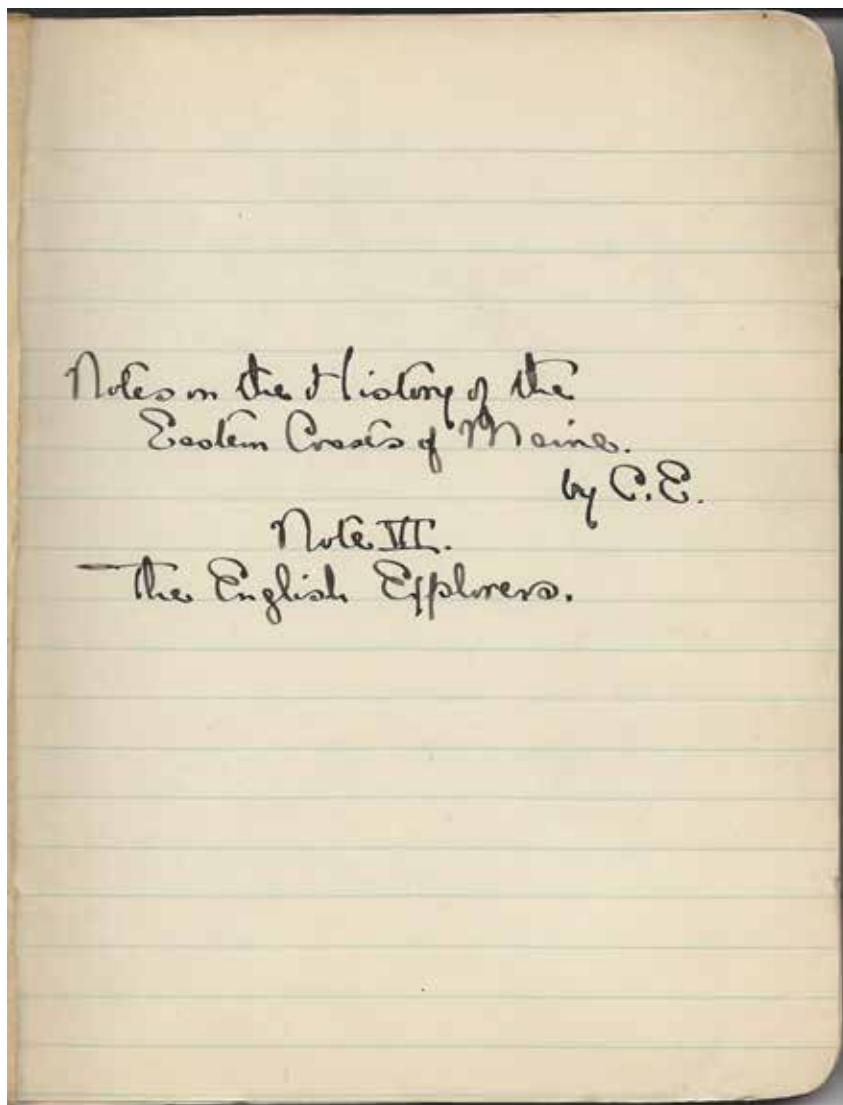 Notes on the History of the
Eastern Coasts of Maine.
by C.E.
Note VII.
The English Explorers.